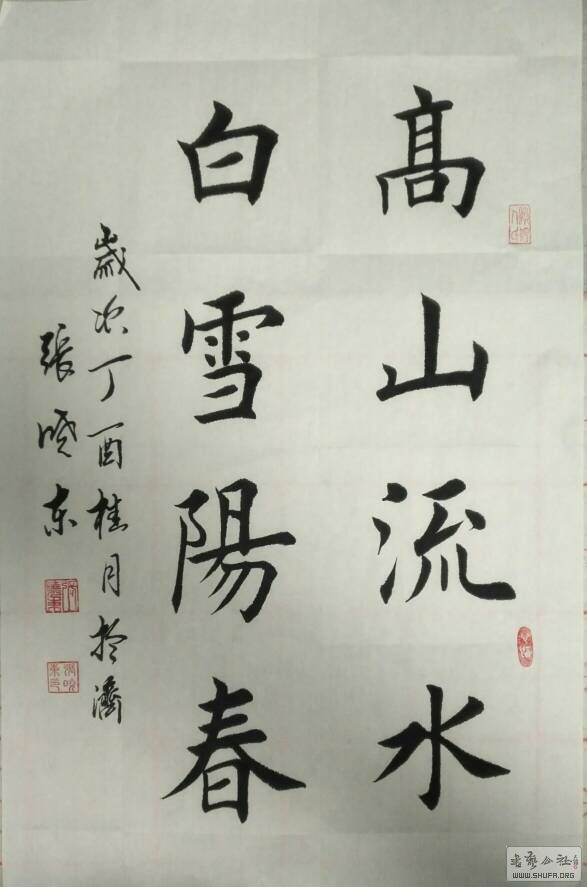 髙山流水
白雪陽春
歲次丁酉桂月於濟
張曉东
書藝公社
WWW.SHUFA.ORG